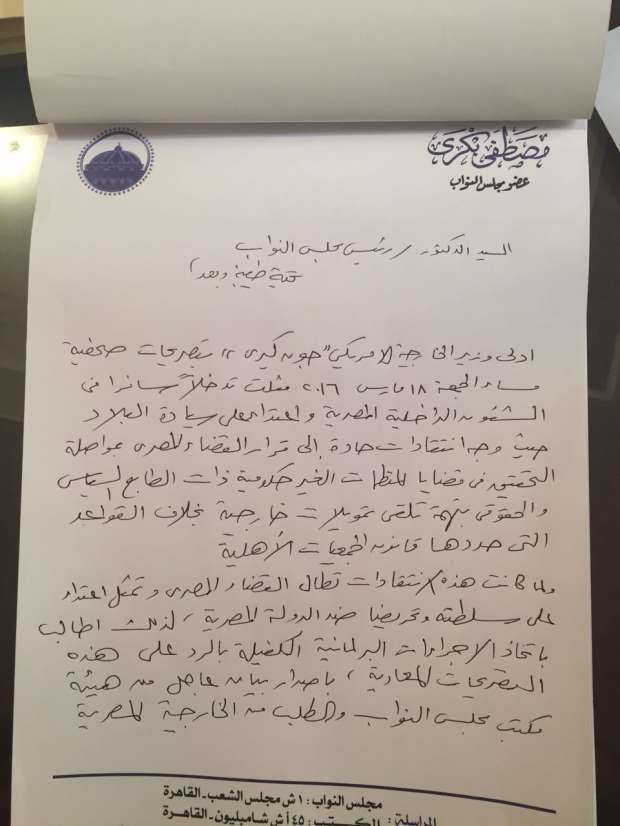 مصطفى بكرى
عضو مجلس النواب
السيد الدكتور / رئيس مجلس النواب
تحية طيبة وبعد /
ادلى وزير الخارجية الامريكي "جون كيرى" بتصريحات صحفية
مساء الجمعة ١٨ مارس ٢٠١٦ مثلت تدخلاً سافرا فى
الشئون الداخلية المصرية واعتداء على سيادة البلاد
حيث وجه انتقادات حادة إلى قرار القضاء المصرى بمواصلة
التحقيق فى قضايا المنظمات الغير حكومية ذات الطابع السياسى
والحقوقى بتهمة تلقى تمويلات خارجية بخلاف القواعد
التى حددها قانون الجمعيات الأهلية
ولما كانت هذه الانتقادات تطال القضاء المصرى وتمثل اعتداء
على سلطته وتحريضا ضد الدولة المصرية ، لذلك اطالب
باتخاذ الاجراءات البرلمانية الكفيلة بالرد على هذه
التصريحات المعادية ، باصدار بيان عاجل من هيئة
مكتب مجلس النواب والطلب من الخارجية المصرية
مجلس النواب : ١ ش مجلس الشعب - القاهرة
المراسلة :
المكتب : ٤٥ أ ش شامبليون - القاهرة